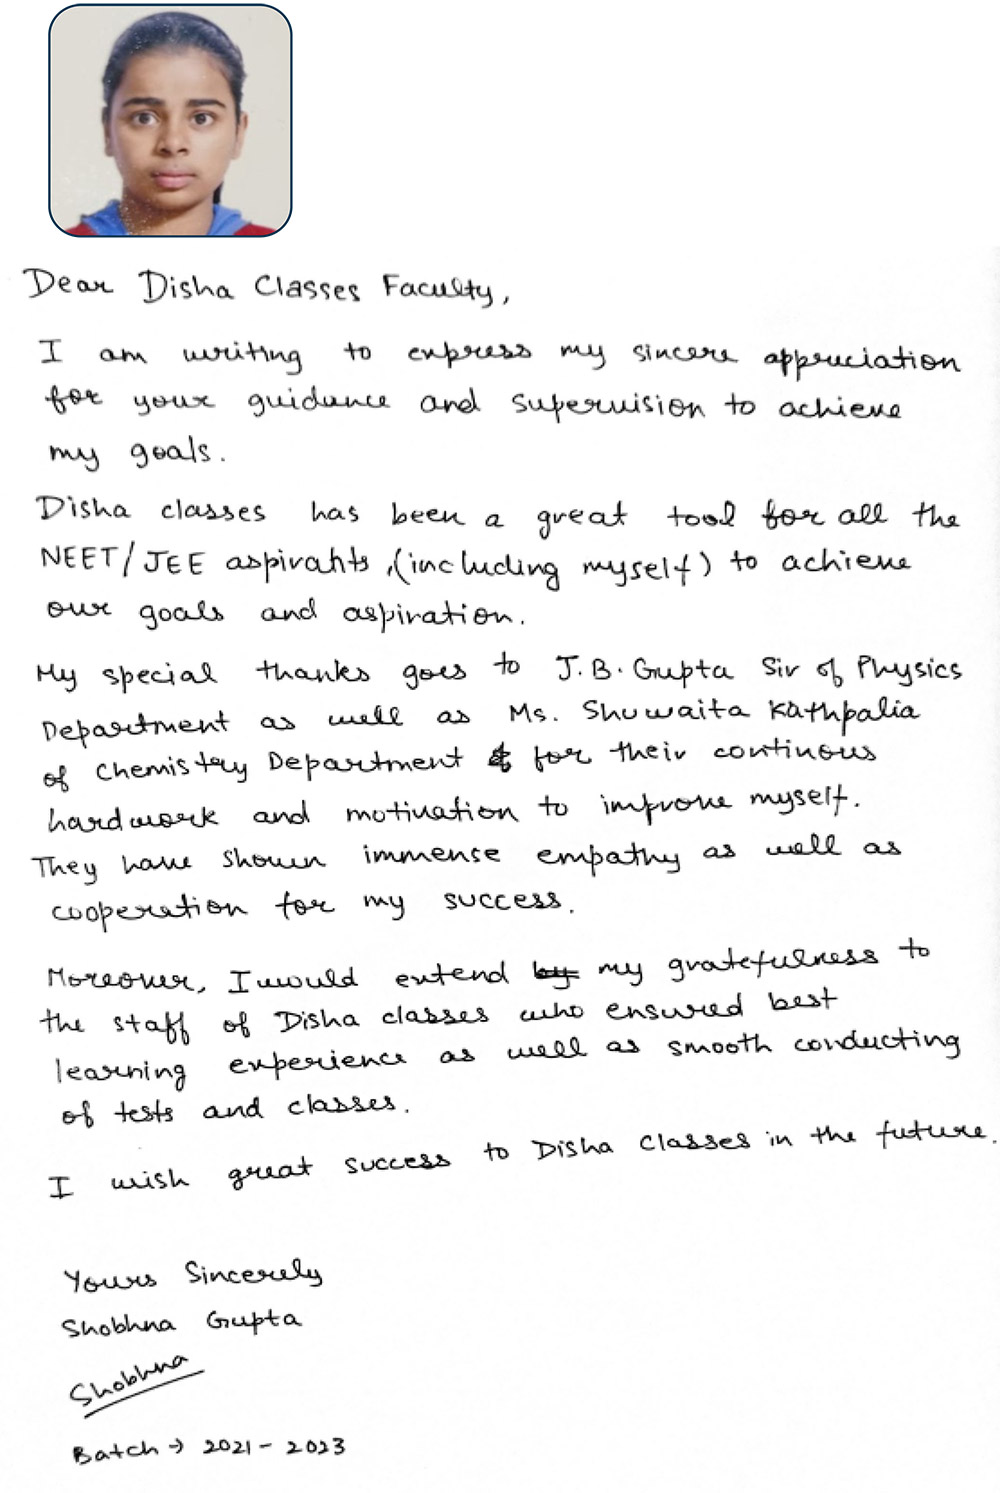 Dear Disha Classes Faculty,
I am writing to express my sincere appreciation
for your guidance and supervision to achieve
my goals.
Disha classes has been a great tool for all the
NEET/JEE aspirants, (including myself) to achieve
our goals and aspiration.
My special thanks goes to J.B. Gupta Sir of Physics
Department as well as Ms. Shuwaita Kathpalia
of Chemistry Department for their continous
hardwork and motivation to improve myself.
They have shown immense empathy as well as
cooperation for my success.
Moreover, I would extend by my gratefulness to
the staff of Disha classes who ensured best
learning experience as well as smooth conducting
of tests and classes.
I wish great success to Disha Classes in the future.
Yours Sincerely
Shobhna Gupta
Shobhna
Batch → 2021 - 2023